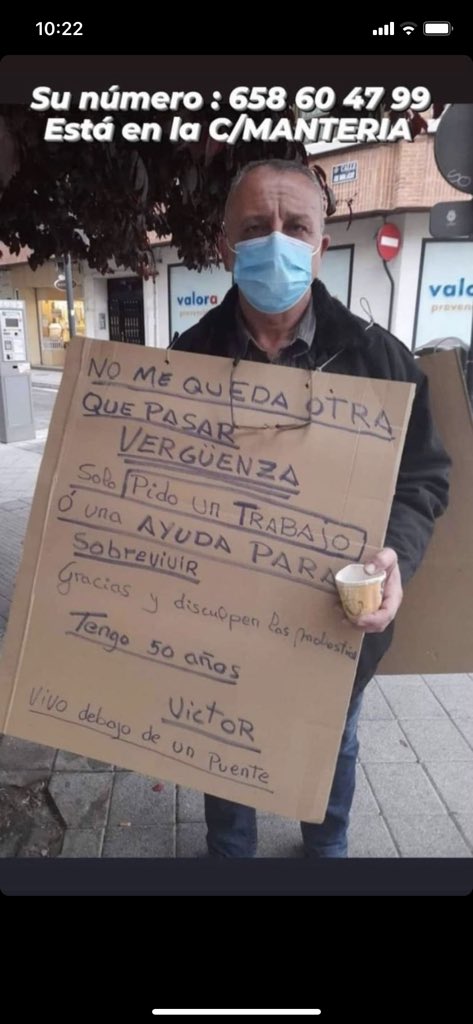 10:22
Su número : 658 60 47 99
Está en la C/MANTERIA
CALLE
valora
preven
valo
preven
NO ME QUEDA OTRA
QUE PASAR
VERGÜENZA
Solo Pido un TRABAJO
Ó una AYUDA PARA
SobrevIVIR
Gracias y disculpen las molestias
Tengo 50 años
VictoR
Vivo debajo de un Puente